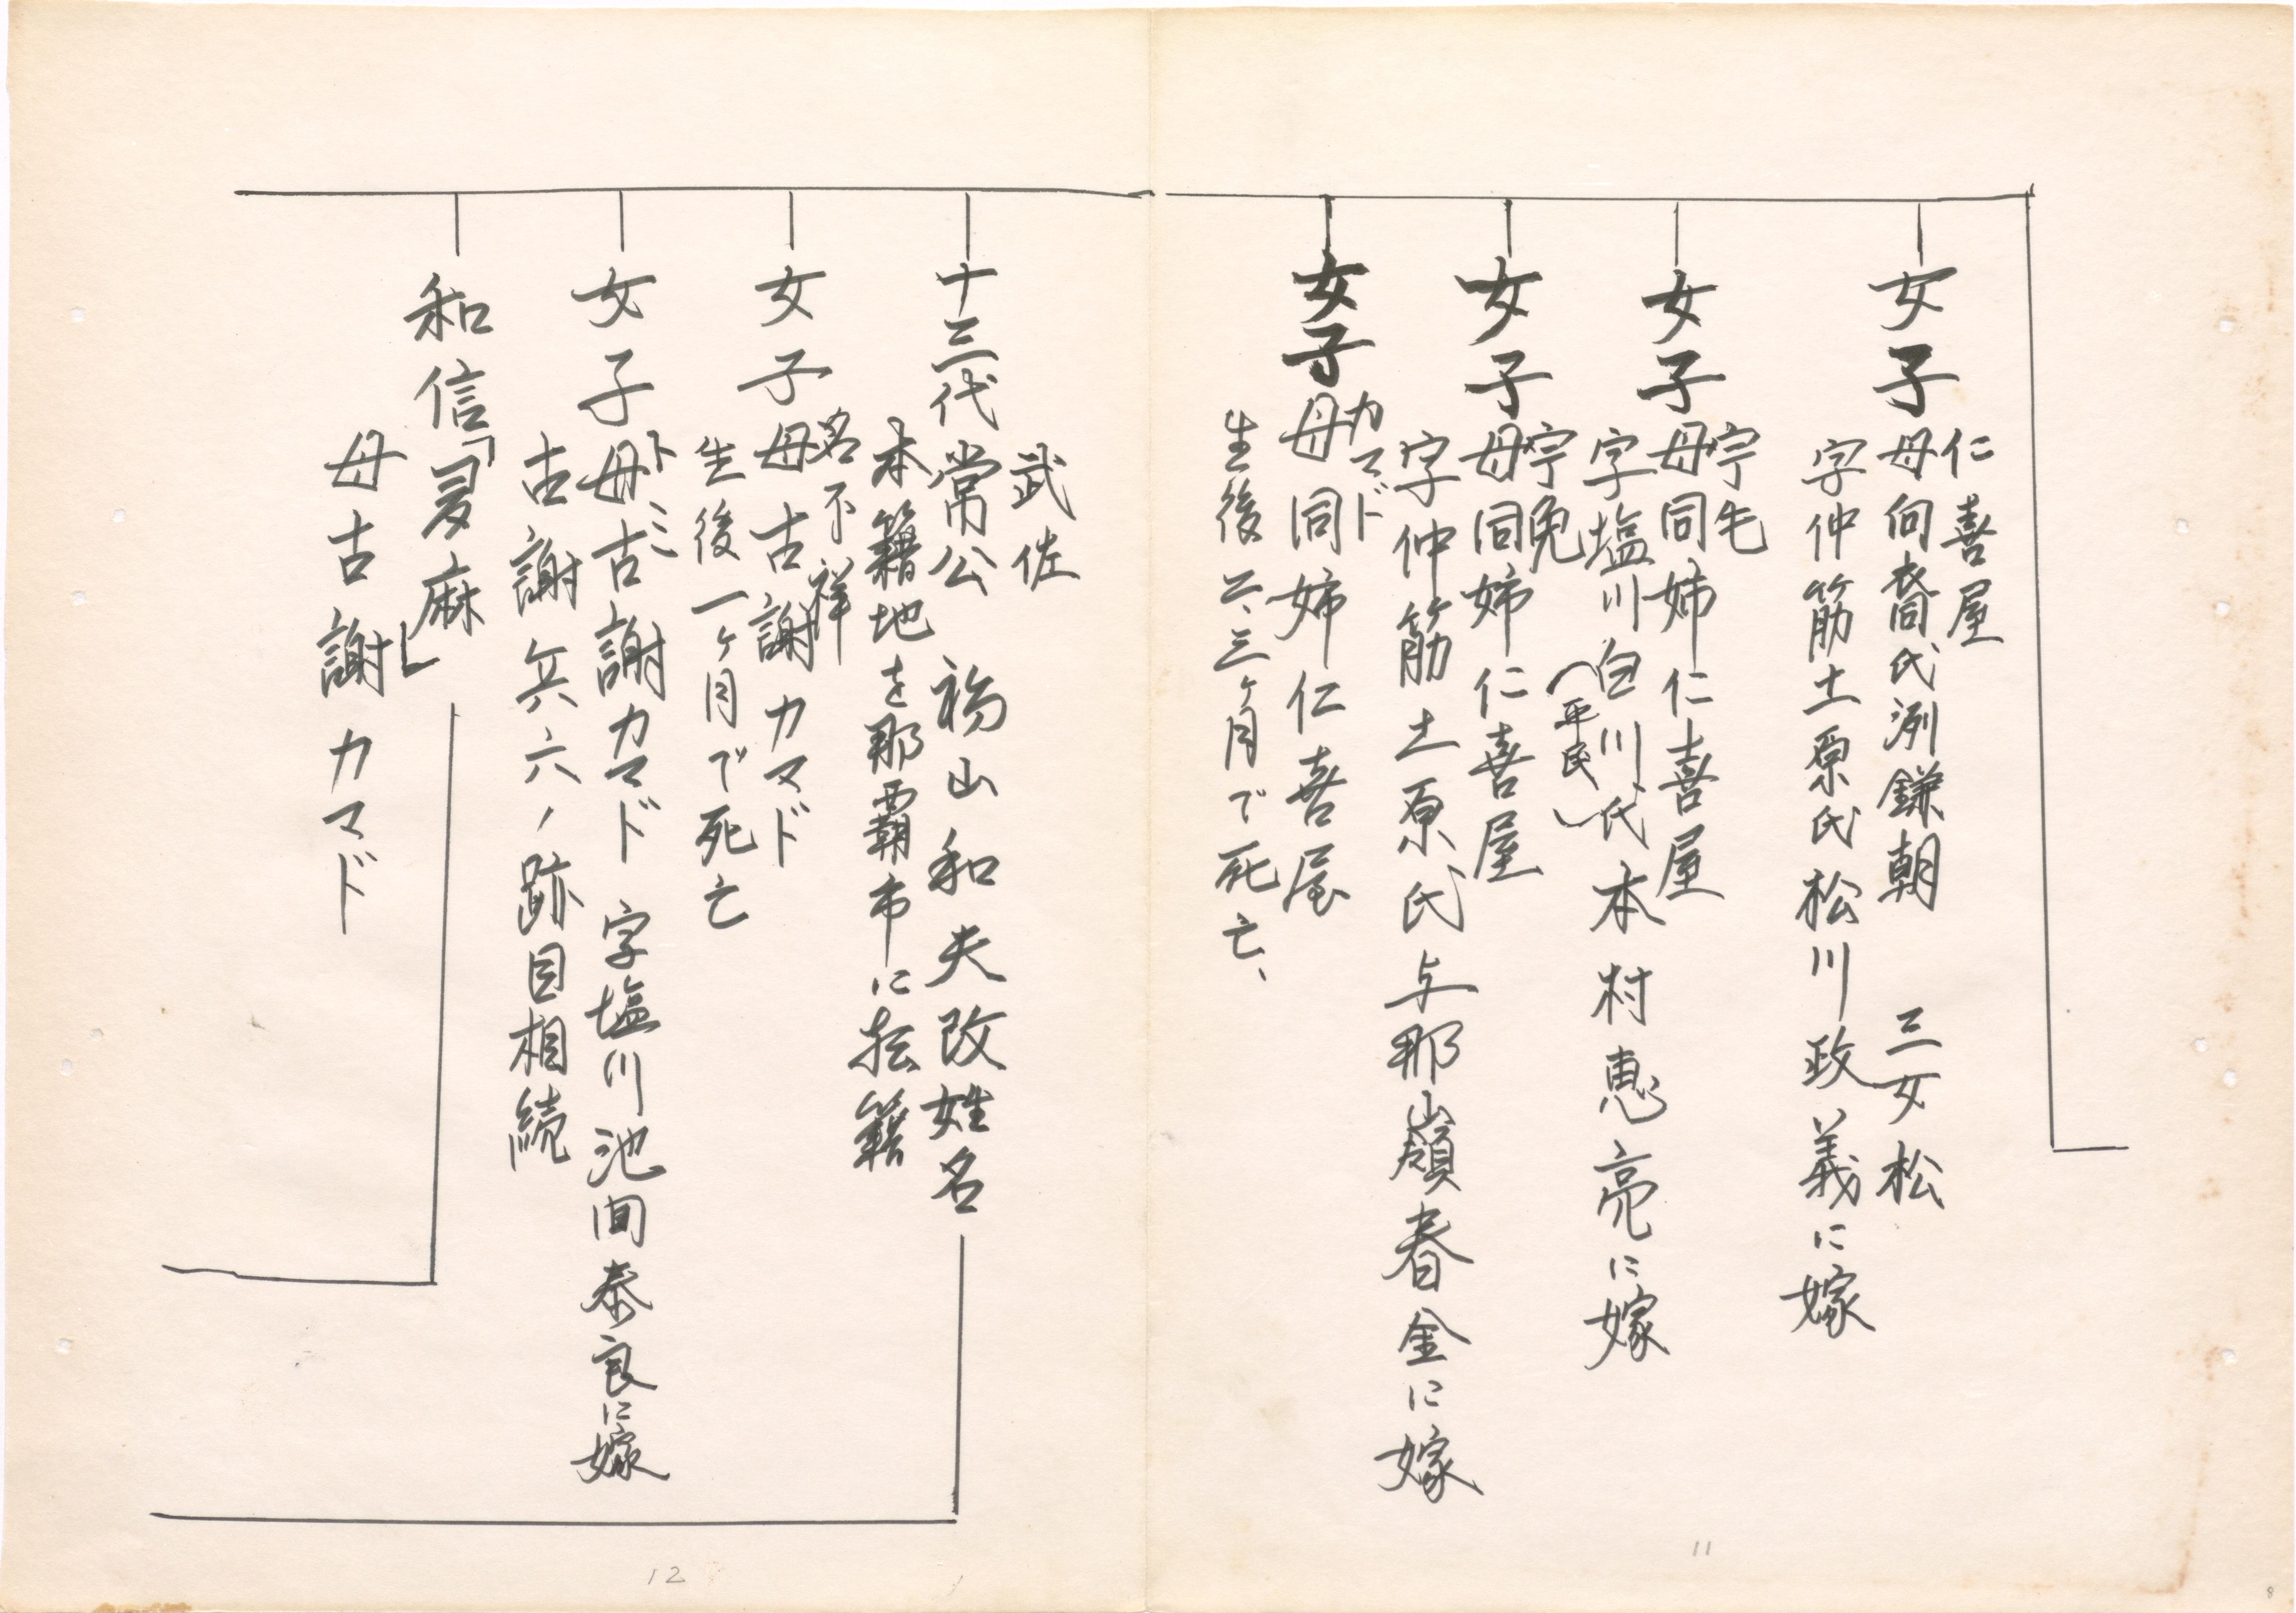 仁喜屋
女子 母向裔氏洌鎌朝 三女松
字仲筋土原氏松川政義に嫁
宇毛
女子 母同姉仁喜屋
字塩川白川氏本村恵亮に嫁
(平民)
宇免
女子 母同姉仁喜屋
字仲筋土原氏与那嶺春金に嫁
カマド
女子 母同姉仁喜屋
生後二、三ヶ月で死亡、
11
武佐
十三代常公 福山和夫改姓名
本籍地を那覇市に転籍
名不祥
女子 母古謝カマド
生後一ヶ月で死亡
トミ
女子 母古謝カマド 字塩川池間泰良に嫁
古謝兵六ノ跡目相続
和信「麻」
母古謝カマド
12
8